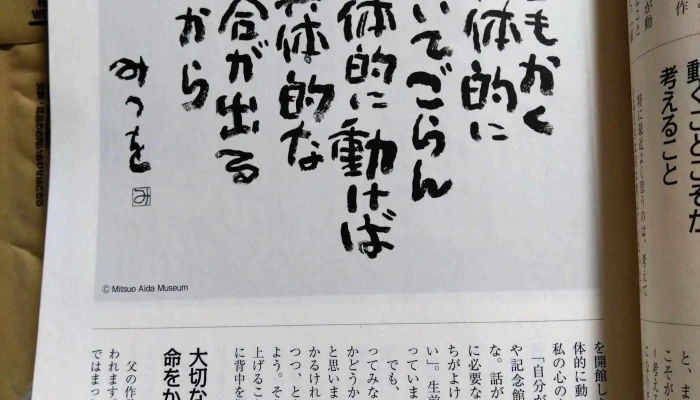 動くことこそが
考えること
もかく
体的に
いてごらん
体的に動けば
体的な
合が出る
から
みつを
み
© Mitsuo Aida Museum
を開館し
体的に動
私の心の
「自分が
や記念館
な。話が
に必要な
ちがよけ
い」。生前
っていま
でも、
ってみな
かどうか
と思いま
かるけれ
つつ、と
よう。そ
上げるこ
に背中を
大切な
命をか
父の作
われます
ではまっ